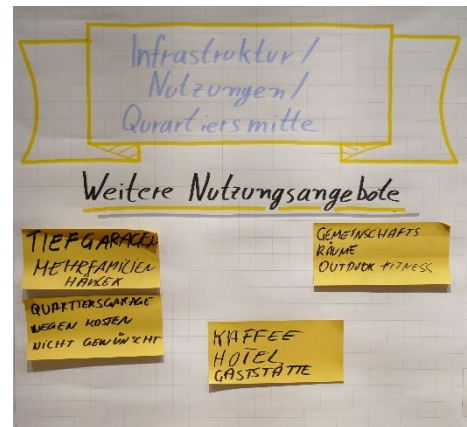 Infrastruktur/
Nutzungen/
Qurartiersmitte
Weitere Nutzungsangebote
TIEFGARAGEN
MEHRFAMILIEN
HÄUSER
QUARTIERSGARAGE
WEGEN KOSTEN
NICHT GEWÜNSCHT
GEMEINSCHAFTS
RÄUME
OUTDOOR FITNESS
KAFFEE
HOTEL
GASTSTÄTTE